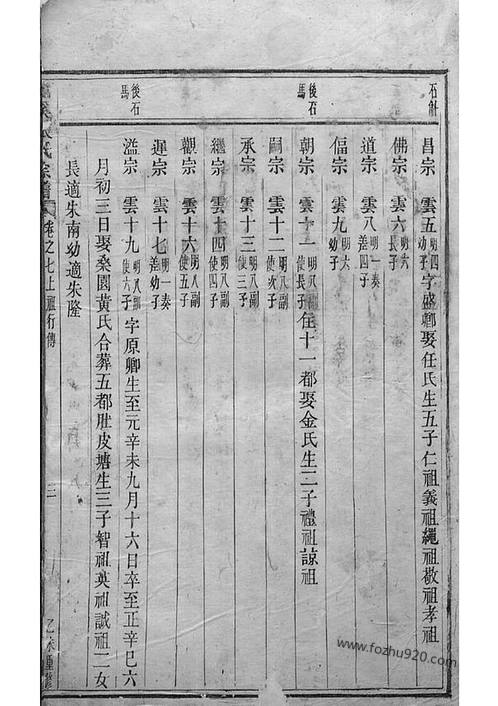 石斛
後石馬
後石馬
昌宗 雲五 明四幼子 字盛卿娶任氏生五子仁祖義祖繩祖敬祖孝祖
佛宗 雲六 明六長子
道宗 雲八 明一奏差四子
偪宗 雲九 明六幼子
朝宗 雲十一 明八副使長子 住十一都娶金氏生二子禮祖諒祖
嗣宗 雲十二 明八副使次子
承宗 雲十三 明八副使三子
繼宗 雲十四 明八副使四子
觀宗 雲十六 明八副使五子
遲宗 雲十七 明一奏差幼子
溢宗 雲十九 明八副使六子 字原卿生至元辛未九月十六日卒至正辛巳六
月初三日娶桑園黃氏合葬五都肚皮塘生三子智祖英祖誠祖二女
長適朱南幼適朱隆
氏宗譜 卷之七上 行傳 三 乙未重修
www.fozhu920.com